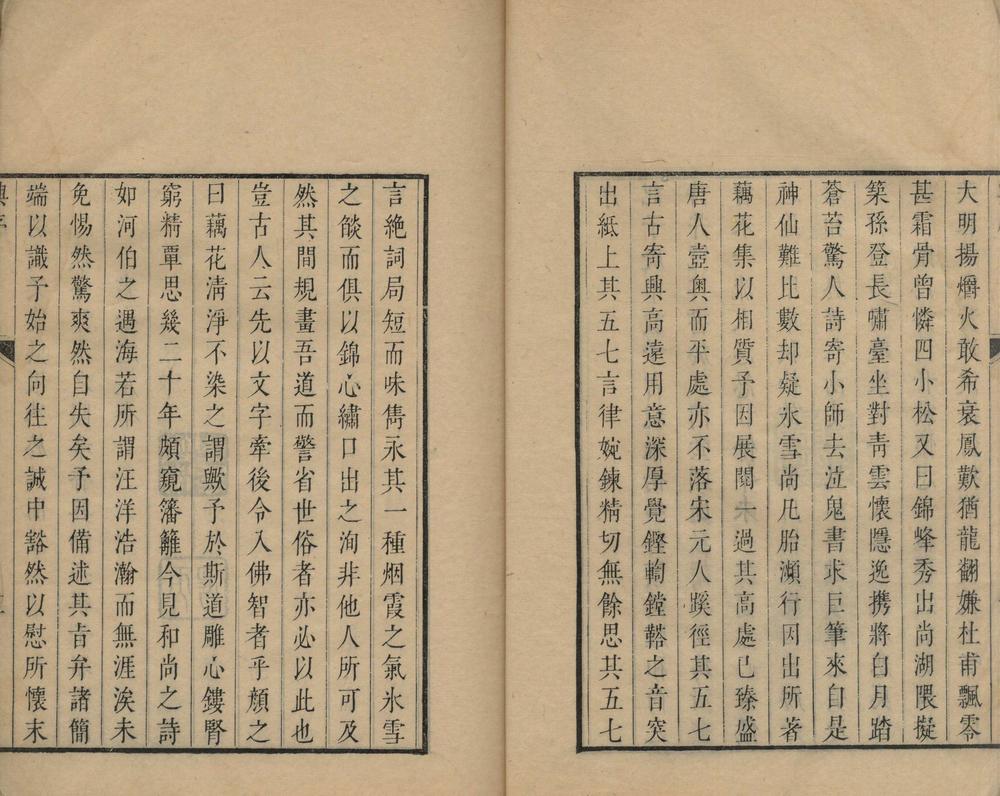 大明揚爝火敢希衰鳳歎猶龍翻嫌杜甫飄零
甚霜骨曾憐四小松又曰錦峰秀出尚湖隈擬
築孫登長嘯臺坐對靑雲懷隱逸携將白月踏
蒼苔驚人詩寄小師去泣鬼書求巨筆來自是
神仙難比數却疑氷雪尚凡胎瀕行因出所著
藕花集以相質予因展閱一過其高處已臻盛
唐人壼奥而平處亦不落宋元人蹊徑其五七
言古寄興高遠用意深厚覺鏗鍧鏜鞳之音突
出紙上其五七言律婉鍊精切無餘思其五七
言絶詞局短而味雋永其一種烟霞之氣氷雪
之燄而俱以錦心繡口出之洵非他人所可及
然其間規畫吾道而警省世俗者亦必以此也
豈古人云先以文字牽後令入佛智者乎顏之
曰藕花淸淨不染之謂歟予於斯道雕心鏤腎
窮精覃思幾二十年頗窺籓籬今見和尚之詩
如河伯之遇海若所謂汪洋浩瀚而無涯涘未
免惕然驚爽然自失矣予因備述其㫖弁諸簡
端以識予始之向徃之誠中豁然以慰所懷末